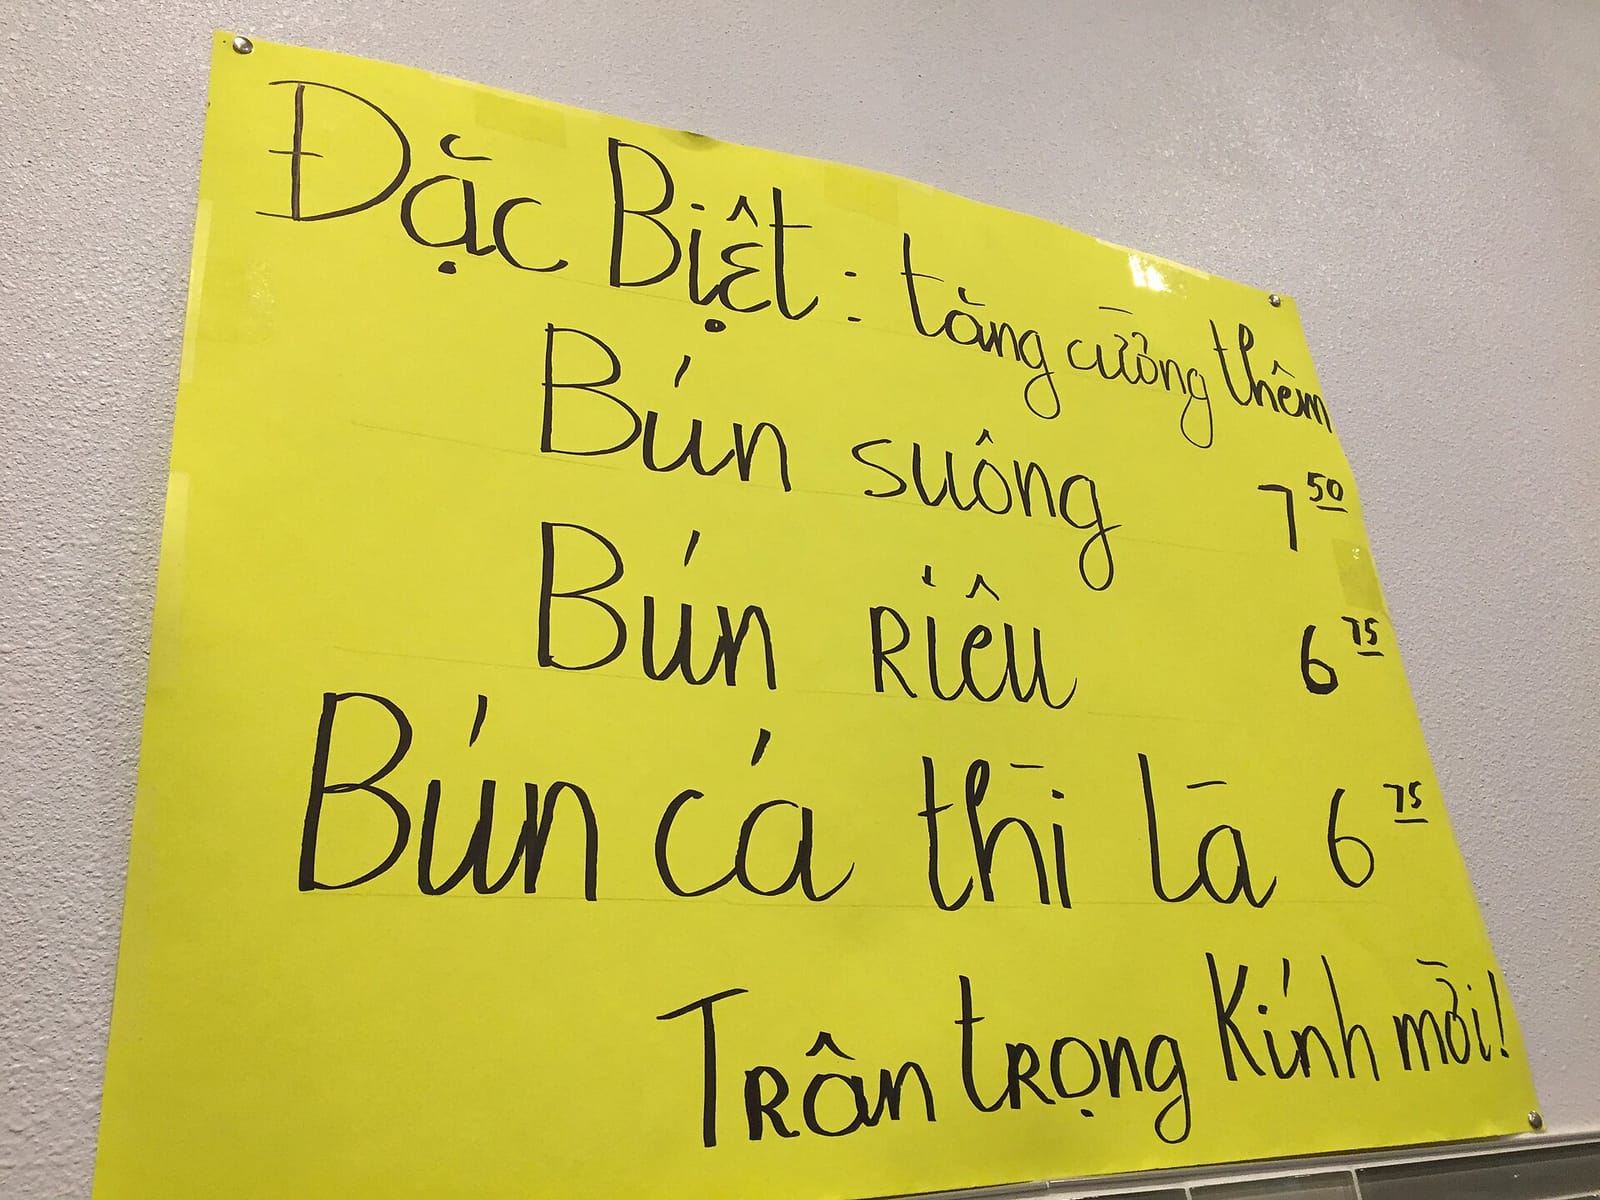 Đặc Biệt: tăng cường thêm
Bún suông 7 50
Bún Riêu 6 75
Bún cá thì là 6 75
Trân trọng Kính mời!